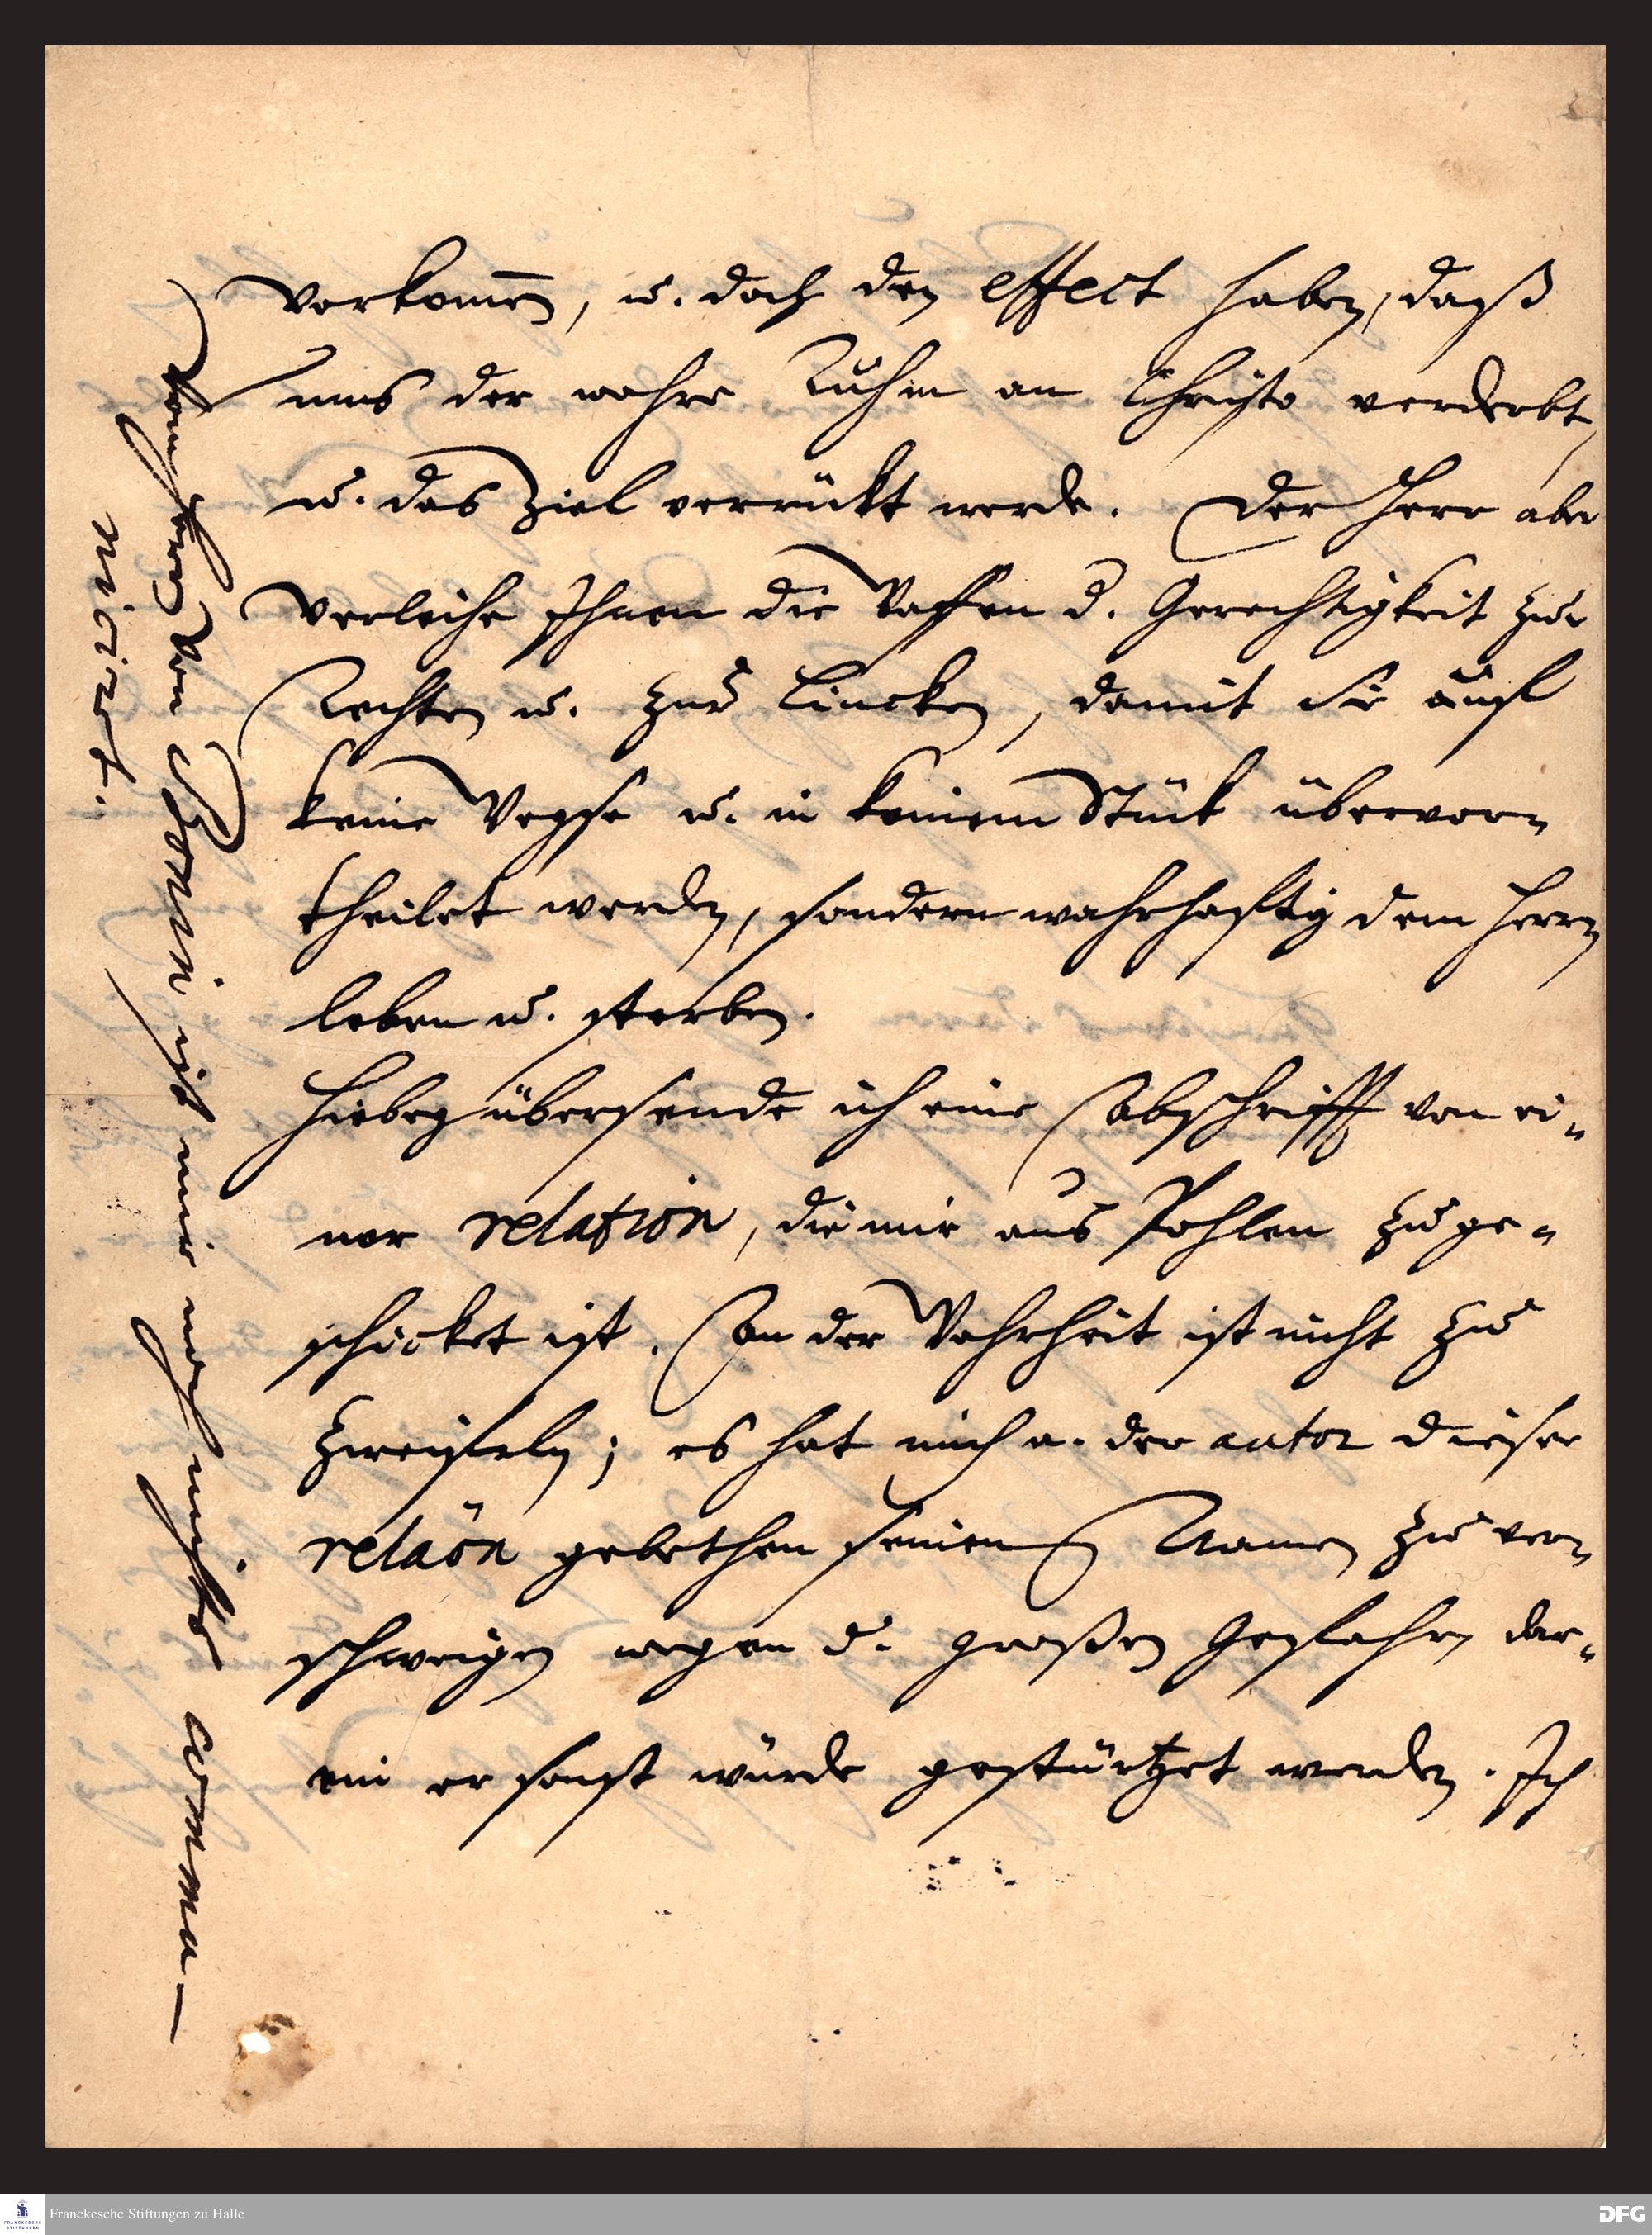 vorkom̄en, u. doch den effect haben, daß
uns der wahre Ruhm an Christo verderbt,
u. das Ziel verrückt werde. Der Herr aber
verleihe Ihnen die Waffen d. Gerechtigkeit zur
Rechten u. zur Lincken, damit sie auf
keine Weyse u. in keinem Stück übervor-
theilet werden, sondern wahrhaftig dem Herrn
leben u. sterben.
Hiebey übersende ich eine Abschrifft von ei-
ner relation, die mir aus Pohlen zuge-
schicket ist. An der Wahrheit ist nicht zu
zweifeln; es hat mich a. der autor dieser
relaōn gebethen seinen Namen zu ver-
schweigen wegen d. großen Gefahr, dar-
ein er sonst würde gestürtzet werden. Ich
Vom Herrn von Bonin ist mir noch nichts commu-
nicirt.
Franckesche Stiftungen zu Halle
FRANCKESCHE STIFTUNGEN
DFG